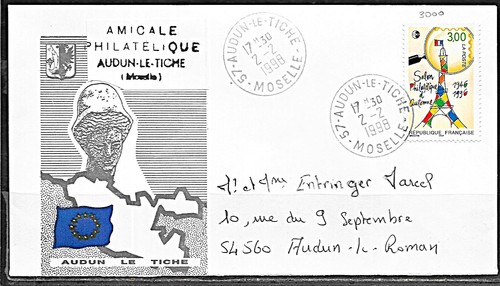 AMICALE
PHILATELIQUE
AUDUN-LE-TICHE
(Moselle)
AUDUN LE TICHE
57-AUDUN-LE-TICHE
17 H 30
2-2
1998
MOSELLE
57-AUDUN-LE-TICHE
17 H 30
2-2
1998
MOSELLE
3000
3,00
LA POSTE
Salon
Philatélique
d'automne
1946
1996
REPUBLIQUE FRANÇAISE
Mr et Mme Entringer Marcel
10, rue du 9 Septembre
54560 Audun-le-Roman